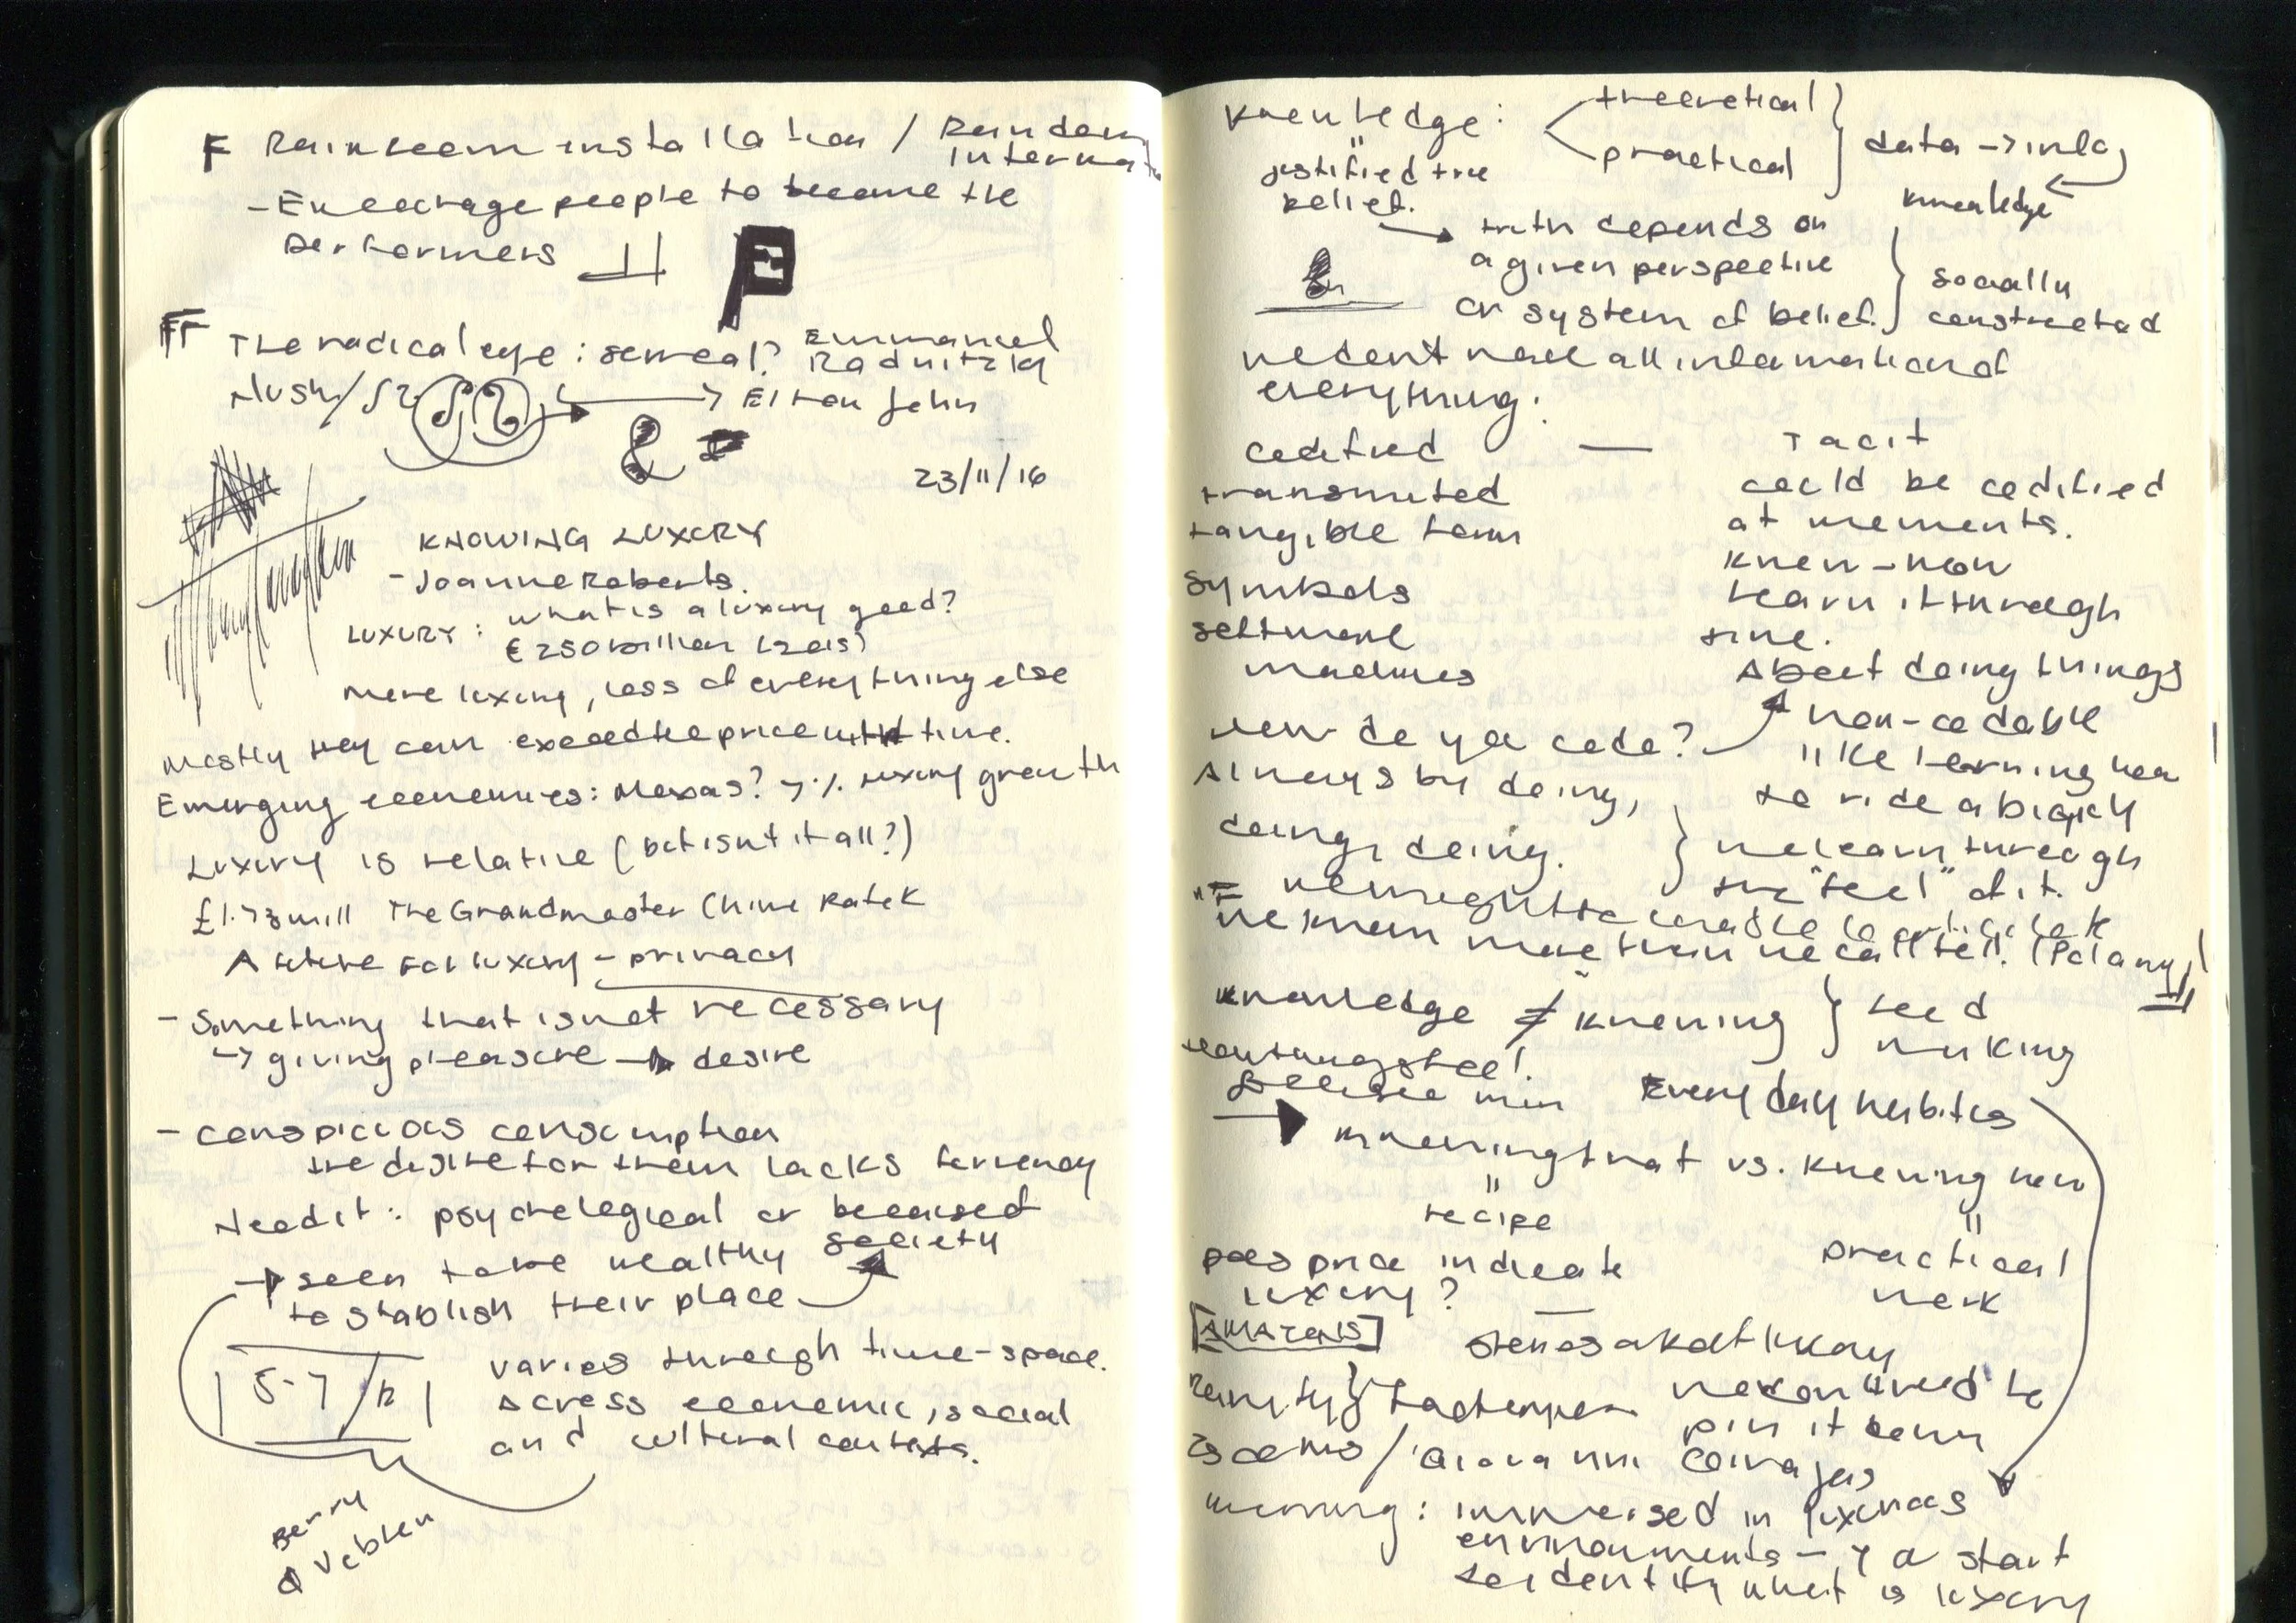 F Rainroom installation / Random
Internat
- Encourage people to become the
performers
FF The radical eye : surreal? Emmanuel
Radnitzky
→ Elton John
23/11/16
KNOWING LUXURY
- Joanne Roberts.
LUXURY : what is a luxury good?
€ 250 billion (2015)
more luxury, less of everything else
Mostly they can exceed the price with time.
Emerging economies: 7% luxury growth
Luxury is relative (but isnt it all?)
£1.73 mill The Grandmaster Chime Patek
A future for luxury - privacy
- Something that is not necessary
→ giving pleasure → desire
- conspicuous consumption
the desire for them lacks fervency
Need it : psychological or because of
society
→ seen to be wealthy
to stablish their place
varies through time-space.
5-7 /
across economic, social
and cultural contexts.
Berry
& Veblen
Knowledge : theoretical
practical
data → info
knowledge
"
justified true
belief.
→ truth depends on
a given perspective
or system of belief.
socially
constructed
we dont need all information of
everything.
codified — Tacit
transmuted could be codified
tangible form at moments.
symbols know-how
software learn it through
time.
machines About doing things
non-codable
How do you code? like learning how
Always by doing, to ride a bicycly
doing, doing. we learn through
the "feel" of it.
we might be unable to articulate
"we know more than we can tell" (Polanyi)
knowledge ≠ knowing } feed
working
Everyday habitus
→ knowing that vs. knowing how
" "
recipe practical
work
Does price indicate
luxury? —
[AMAZONS]
rarity}
we don't need to
pin it down
/ Giovanni
meaning : immersed in luxurious
environments - → a start
to identify what is luxury